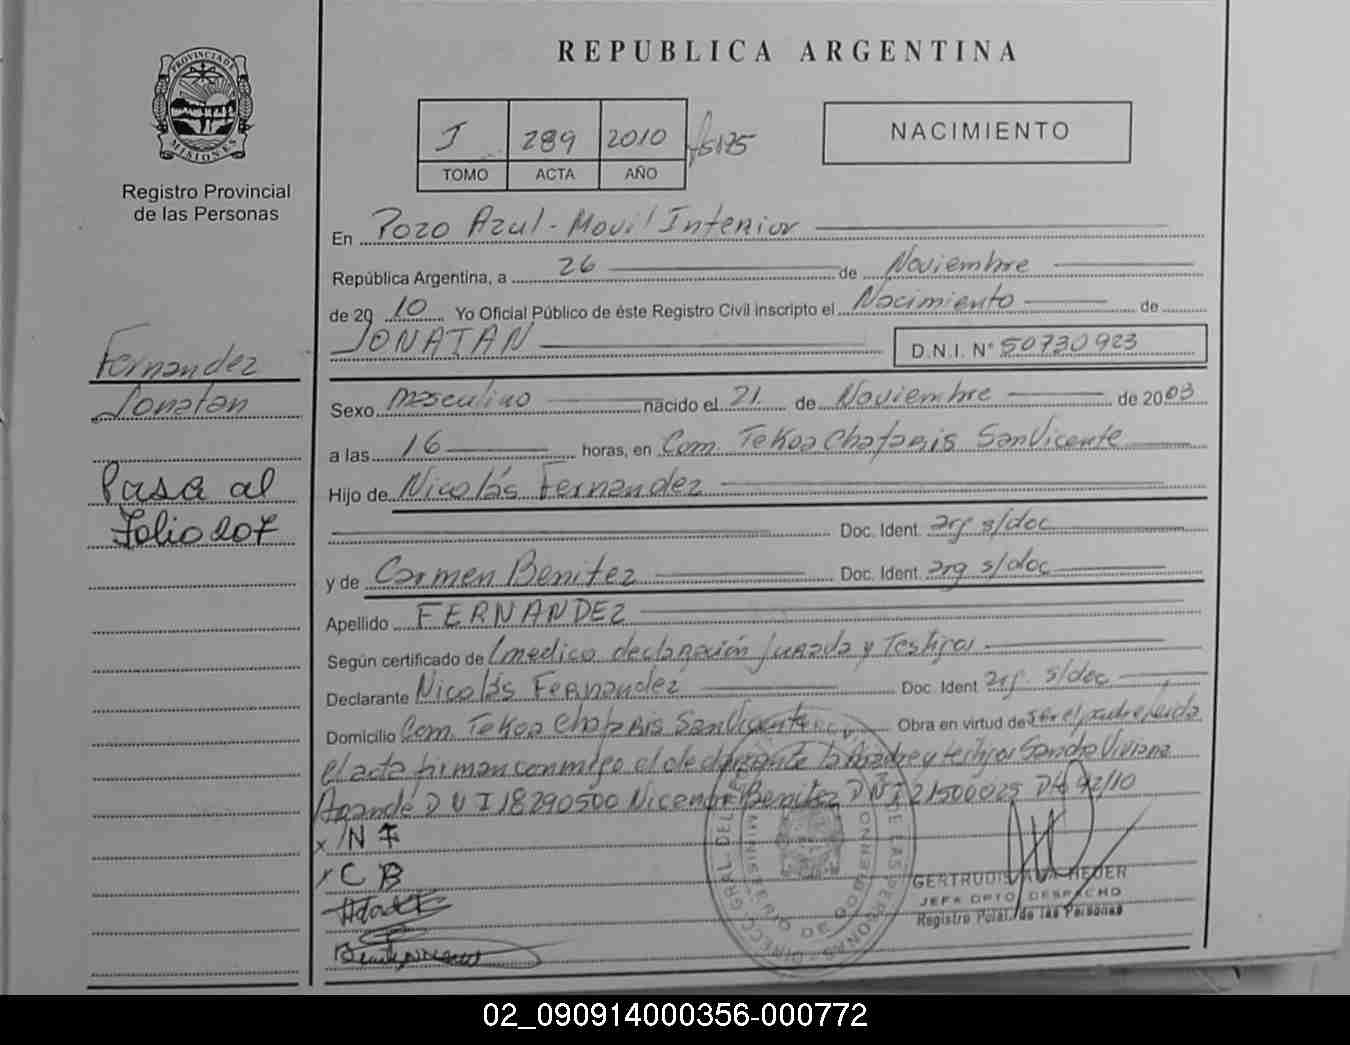 PROVINCIA DE
MISIONES
Registro Provincial
de las Personas
REPUBLICA ARGENTINA
I 289 2010
TOMO ACTA AÑO
NACIMIENTO
En Pozo Azul - Movil Interior
República Argentina, a 26 de Noviembre
de 20 10 Yo Oficial Público de éste Registro Civil inscripto el Nacimiento de
JONATAN D.N.I. N° 50730923
Fernandez
Jonatan
Pasa al
Folio 207
Sexo masculino nacido el 21 de Noviembre de 2003
a las 16 horas, en Com. Tekoa Chafaris San Vicente
Hijo de Nicolás Fernandez
Doc. Ident. arg s/doc
y de Carmen Benitez Doc. Ident. arg s/doc
Apellido FERNANDEZ
Según certificado de /medico declaración jurada y Testigos
Declarante Nicolás Fernandez Doc. Ident arg. s/doc
Domicilio Com. Tekoa Chafaris San Vicente Obra en virtud de ser el padre leida
el acta firman conmigo el declarante la madre y testigos Sandra Viviana
DNI 18290500 Benitez DNI 21500025
x N F
x C B
GERTRUDIS
JEFA DPTO. DESPACHO
Registro Pcial. de las Personas
02_090914000356-000772